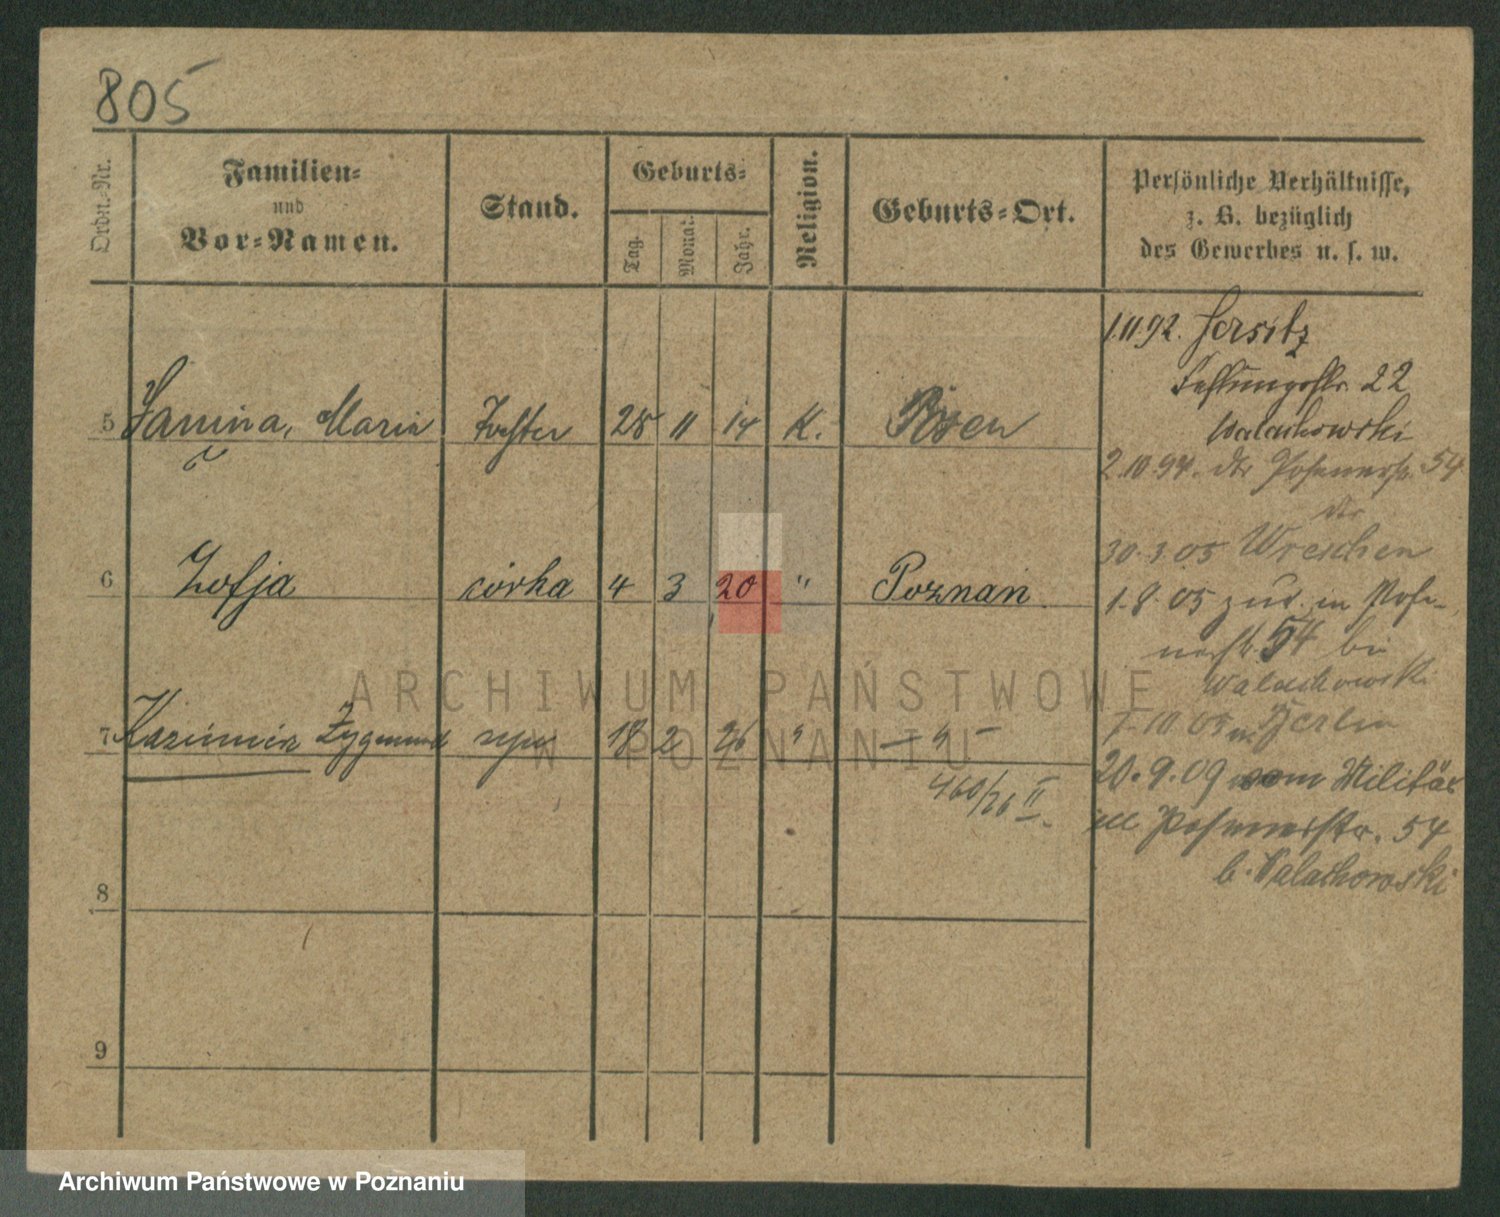 805
Ordn.-Nr.
Familien-
und
Vor-Namen.
Stand.
Geburts-
Tag.
Monat.
Jahr.
Religion.
Geburts-Ort.
Persönliche Verhältnisse,
z. B. bezüglich
des Gewerbes u. s. w.
5 Janina, Maria Tochter 28 11 14 K. Posen
6 Zofja córka 4 3 20 " Poznań
7 Kazimierz Zygmund syn 18 2 26 " — " —
460/26 II
8
9
1.11.92. Jersitz
22
Walachowski
2.10.94. dtr Posenerstr. 54
30.3.05 Wreschen
1.8.05 zur. in Pose-
nerstr. 54 bei
Walachowski
7.10.05 n. Berlin
20.9.09 vom Militär
Posenerstr. 54
b. Walachowski
ARCHIWUM PAŃSTWOWE
W POZNANIU
Archiwum Państwowe w Poznaniu